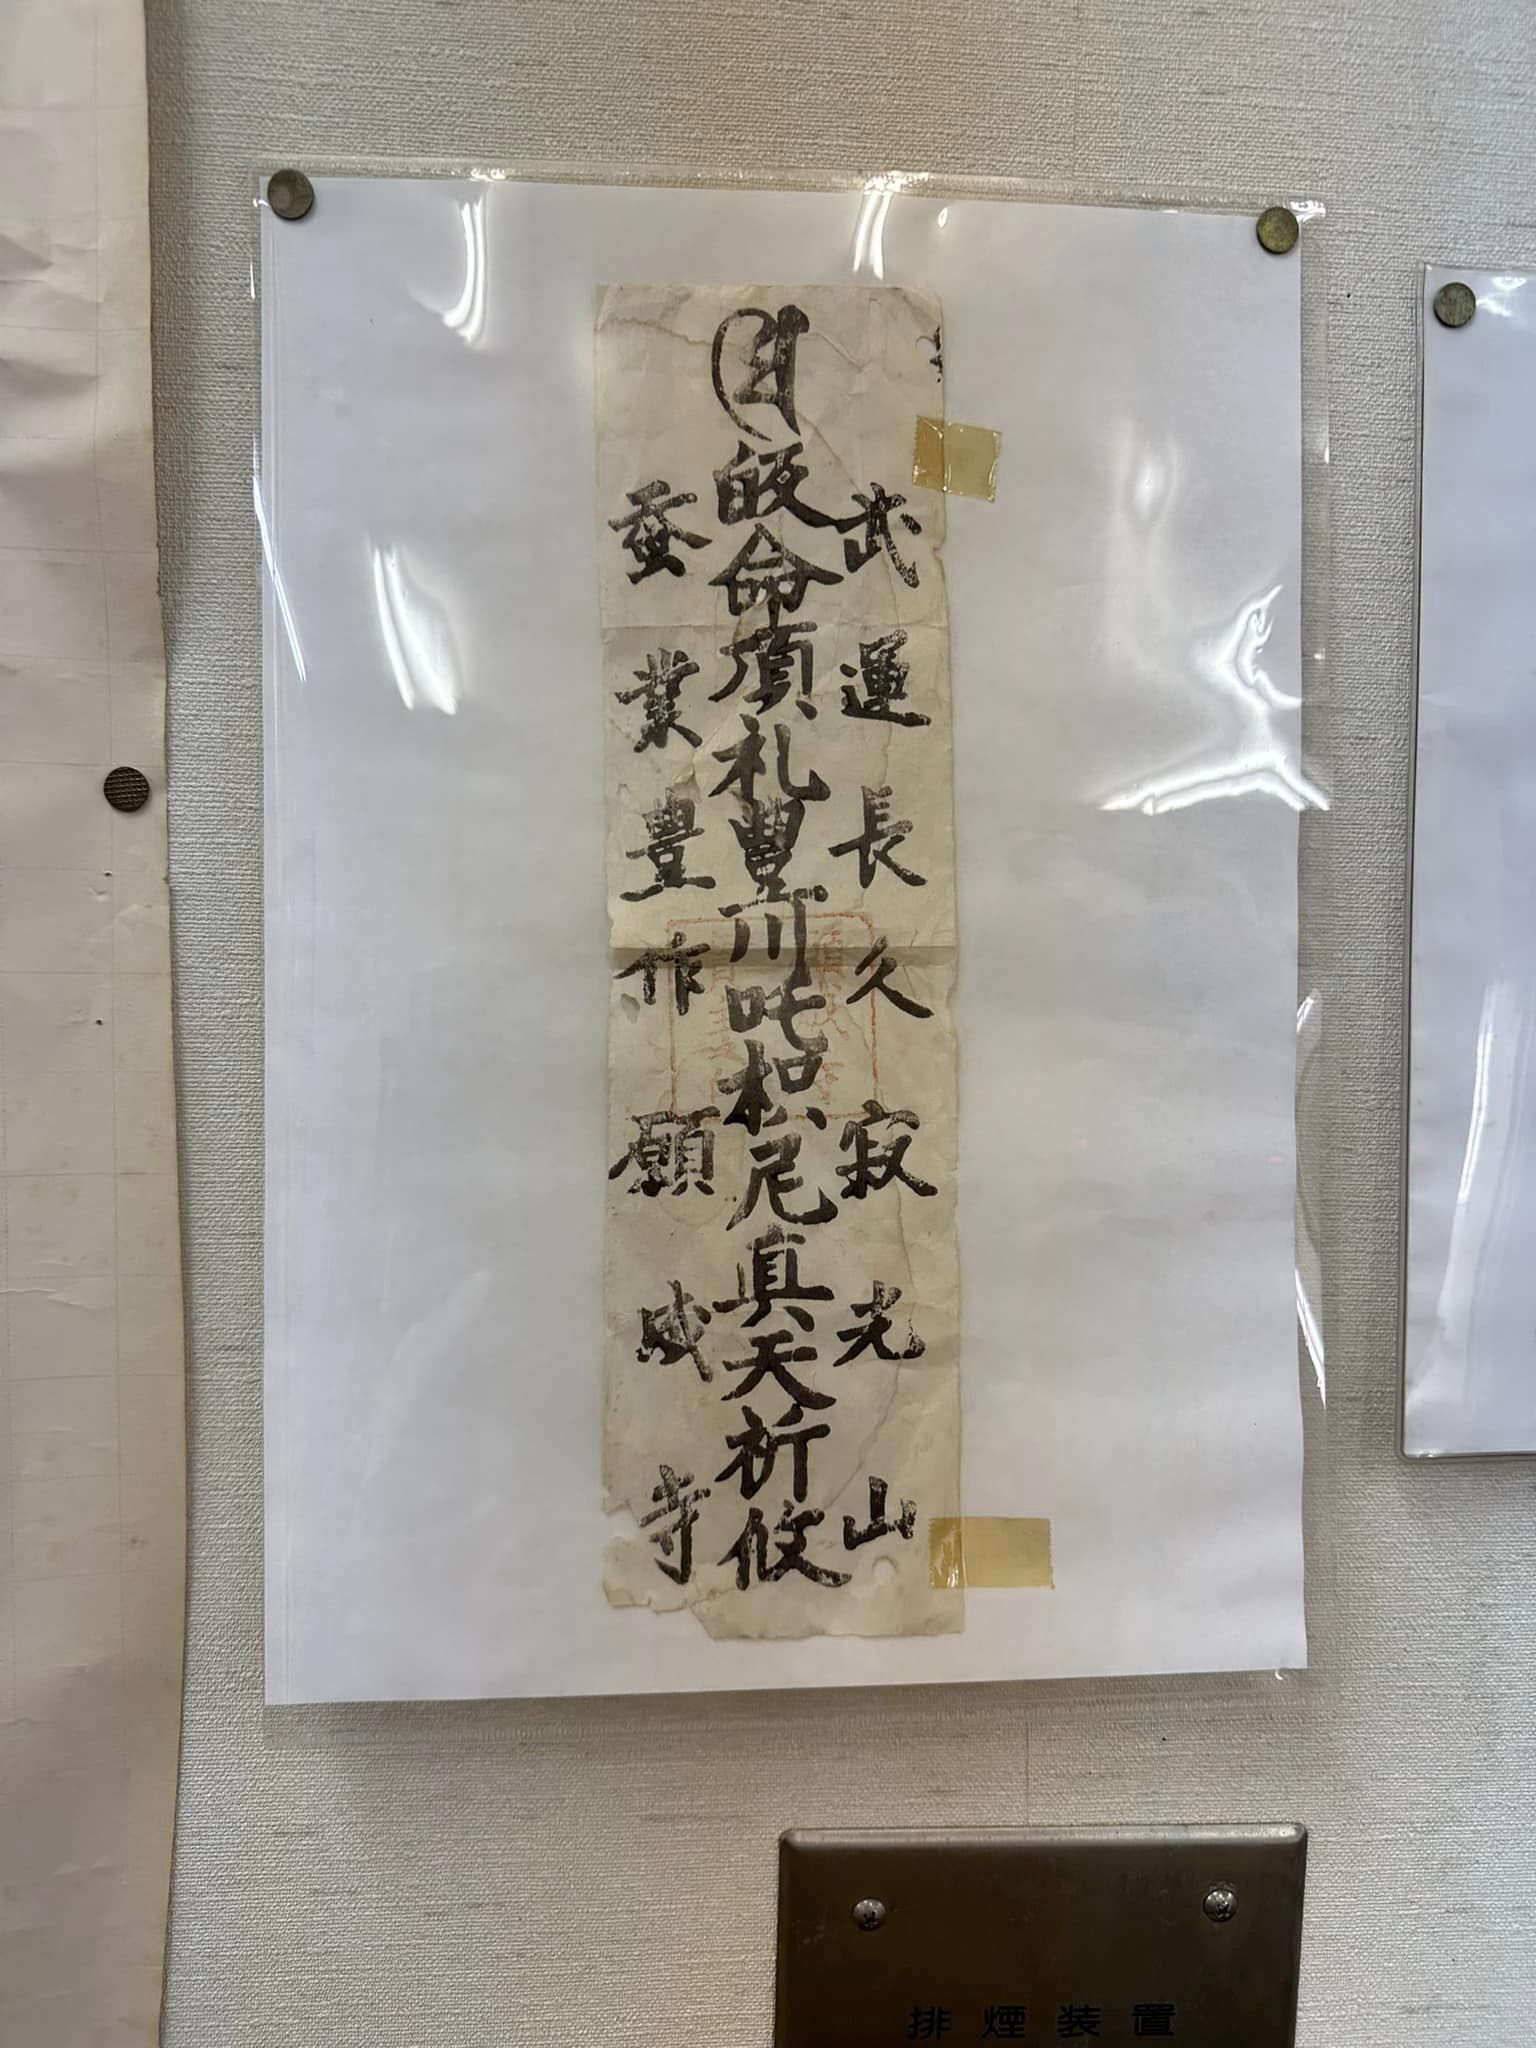 武運長久寂光山
皈命頂礼豐川吒枳尼眞天祈攸
蚕業豐作願成寺
排煙装置